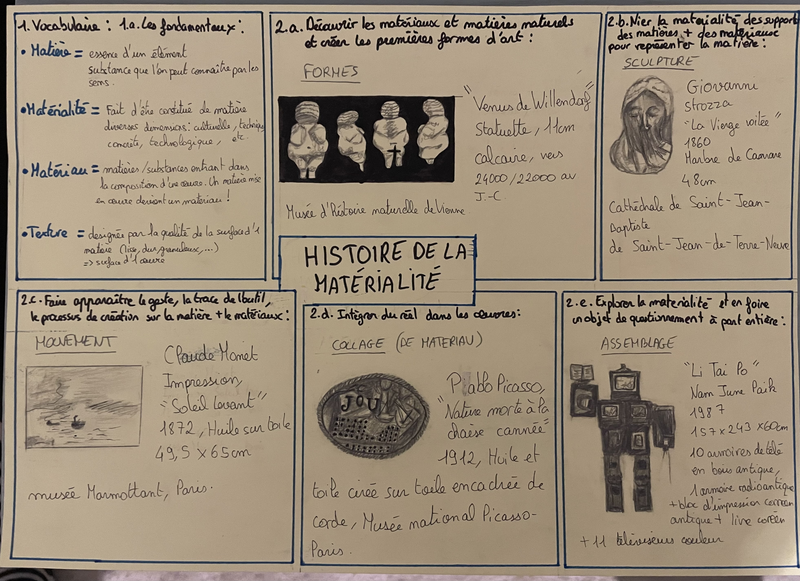 1. Vocabulaire : 1.a. Les fondamentaux :
• Matière = essence d'un élément
Substance que l'on peut connaître par les
sens.
• Matérialité = Fait d'être constitué de matière
diverses dimensions: culturelle, technique
concrète, technologique, etc.
• Matériau = matières/substances entrant dans
la composition d'une œuvre. Un matière mise
en œuvre devient un matériau !
• Texture = désignée par la qualité de la surface d'1
matière (lisse, dur, granuleux, ...)
=> surface d'1 œuvre
2.a. Découvrir les matériaux et matières naturels
et créer les premières formes d'art :
FORMES
"Venus de Willendorf"
Statuette, 11cm
calcaire, vers
24000/22000 av
J.-C.
Musée d'Histoire naturelle de Vienne
2.b. Nier la matérialité des supports
des matières + des matériaux
pour représenter la matière :
SCULPTURE
Giovanni
strozza
"La Vierge voilée"
1860
Marbre de Carrare
48cm
Cathédrale de Saint-Jean-
Baptiste
de Saint-Jean-de-Terre-Neuve
HISTOIRE DE LA
MATÉRIALITÉ
2.c. Faire apparaître le geste, la trace de l'outil,
le processus de création sur la matière + le matériaux :
MOUVEMENT
Claude Monet
Impression,
"Soleil levant"
1872, Huile sur toile
49,5 x 65cm
musée Marmottant, Paris.
2.d. Intégrer du réel dans les œuvres:
COLLAGE (DE MATERIAU)
JOU
Pablo Picasso,
"Nature morte à la
chaise cannée"
1912, Huile et
toile cirée sur toile encadrée de
corde, Musée national Picasso-
Paris.
2.e. Explorer la matérialité et en faire
un objet de questionnement à part entière :
ASSEMBLAGE
"Li Tai Po"
Nam June Paik
1987
157 x 243 x 60cm
10 armoires de télé
en bois antique,
1 armoire radio antique
+ bloc d'impression coréen
antique + livre coréen
+ 11 téléviseurs couleur